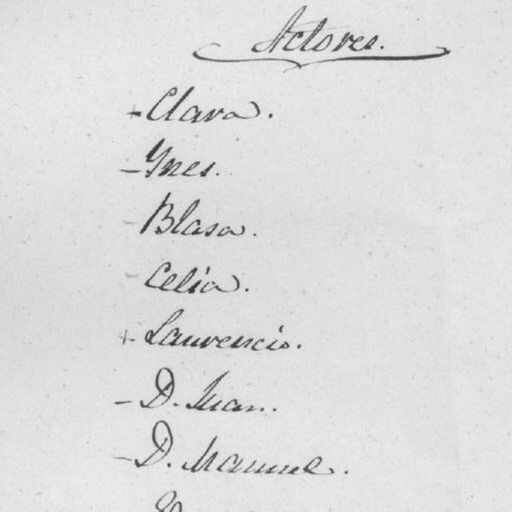 Actores.
+ Clara.
- Ynes.
- Blasa.
- Celia.
+ Laurencio.
- D. Juan.
- D. Manuel.